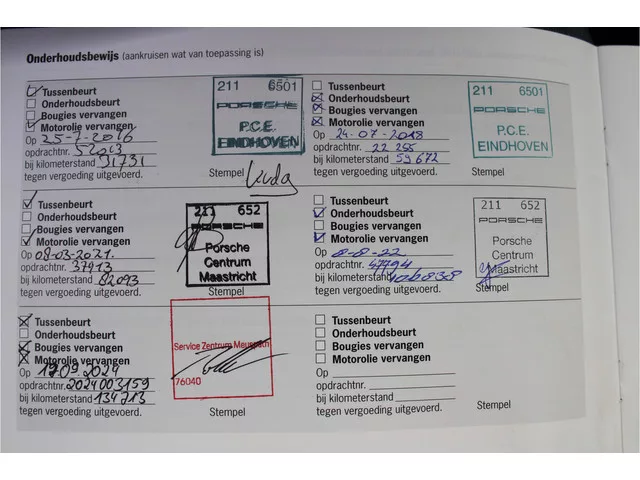 Onderhoudsbewijs (aankruisen wat van toepassing is)
Tussenbeurt
Onderhoudsbeurt
Bougies vervangen
Motorolie vervangen
Op 25-7-2016
opdrachtnr. 52013
bij kilometerstand 31731
tegen vergoeding uitgevoerd.
211 6501
PORSCHE
P.C.E.
EINDHOVEN
Stempel
Tussenbeurt
Onderhoudsbeurt
Bougies vervangen
Motorolie vervangen
Op 24-07-2018
opdrachtnr. 22 255
bij kilometerstand 59.672
tegen vergoeding uitgevoerd.
211 6501
PORSCHE
P.C.E.
EINDHOVEN
Stempel
Tussenbeurt
Onderhoudsbeurt
Bougies vervangen
Motorolie vervangen
Op 08-03-2021.
opdrachtnr. 37913
bij kilometerstand 82093
tegen vergoeding uitgevoerd.
211 652
PORSCHE
Porsche
Centrum
Maastricht
Stempel
Tussenbeurt
Onderhoudsbeurt
Bougies vervangen
Motorolie vervangen
Op 8-8-22
opdrachtnr. 47794
bij kilometerstand 106838
tegen vergoeding uitgevoerd.
211 652
PORSCHE
Porsche
Centrum
Maastricht
Stempel
Tussenbeurt
Onderhoudsbeurt
Bougies vervangen
Motorolie vervangen
Op 19.09.2024
opdrachtnr. 2024003159
bij kilometerstand 134713
tegen vergoeding uitgevoerd.
Service Zentrum
76040
Stempel
Tussenbeurt
Onderhoudsbeurt
Bougies vervangen
Motorolie vervangen
Op
opdrachtnr.
bij kilometerstand
tegen vergoeding uitgevoerd.
Stempel